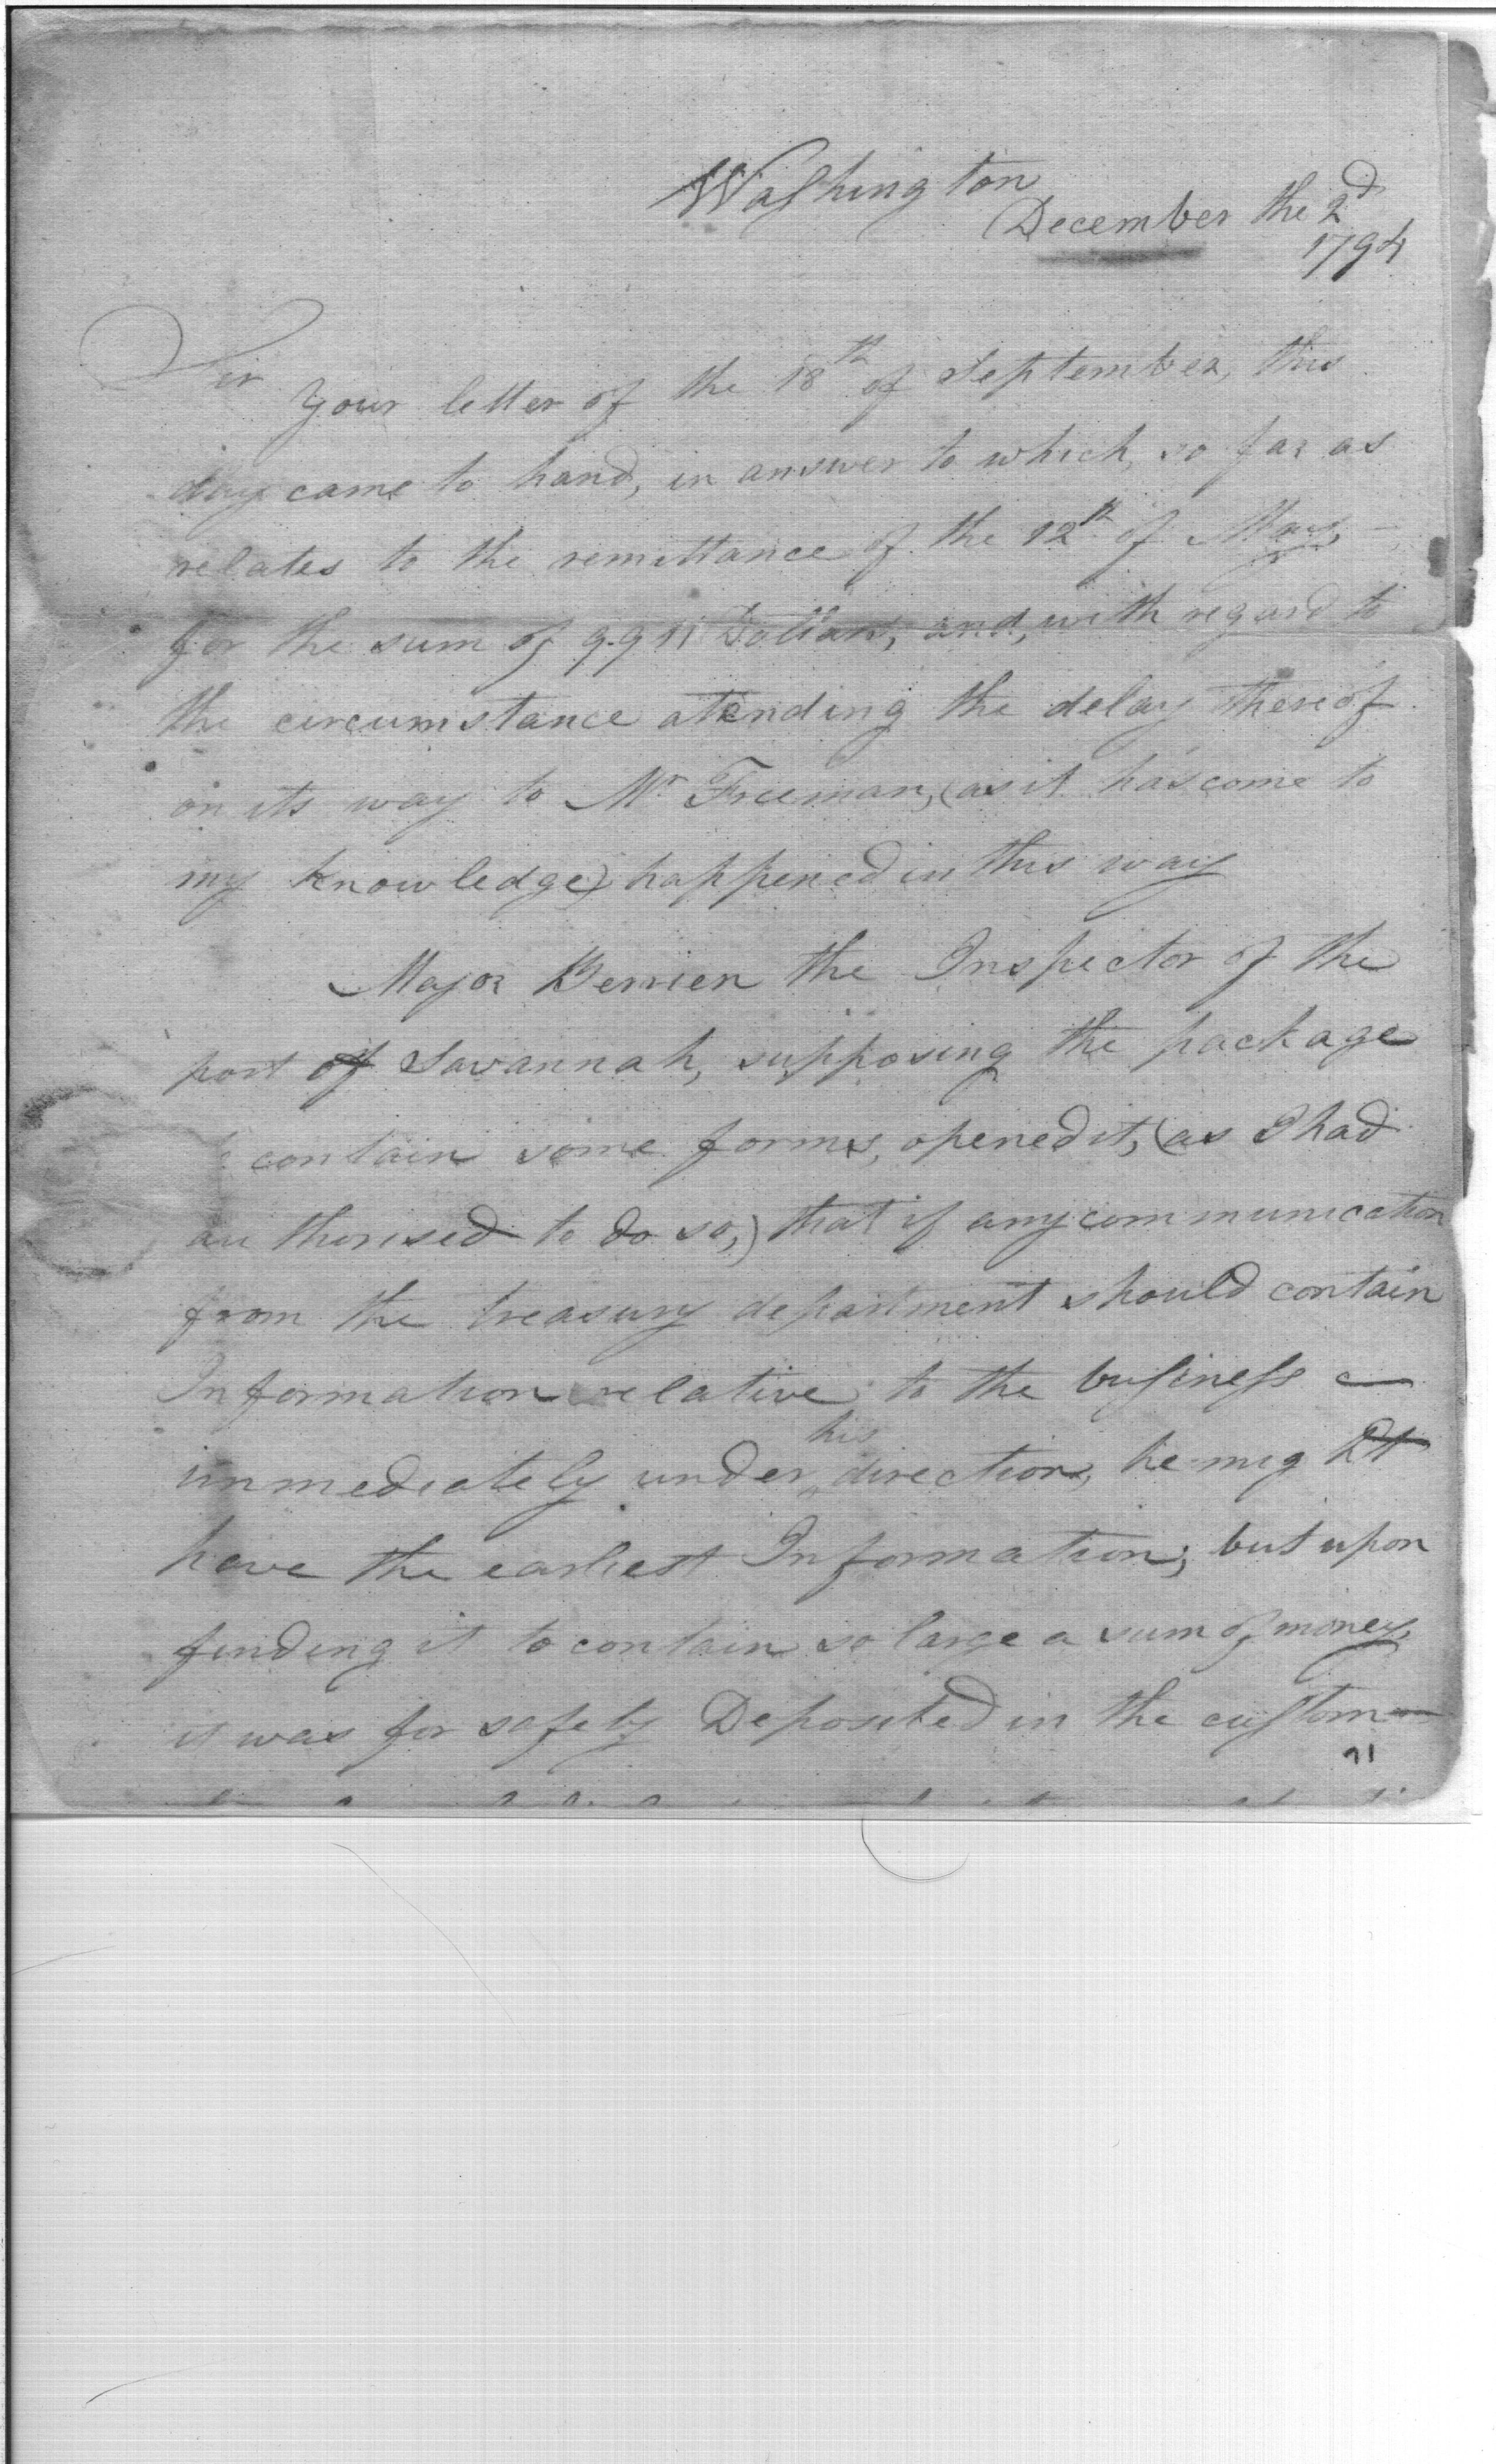 Washington
December the 2d
1794
Sir
Your letter of the 18th of September, this
day came to hand, in answer to which, so far as
relates to the remittance of the 12th of May,
for the sum of 9.911 Dollars, and, with regard to
the circumstance atending the delay thereof
on its way to Mr Freeman, (as it has come to
my knowledge) happened in this way
Major Berrien the Inspector of the
port of Savannah, supposing the package
contain some forms, opened it, (as I had
authorised to do so,) that if any communication
from the treasury department should contain
Information relative to the business
his
immediately under direction, he might
have the earliest Information; but upon
finding it to contain so large a sum of money,
it was for safety Deposited in the custom
71